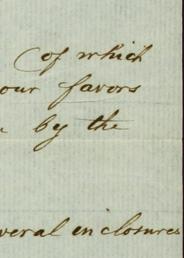 of which
our favors
by the
veral enclosures